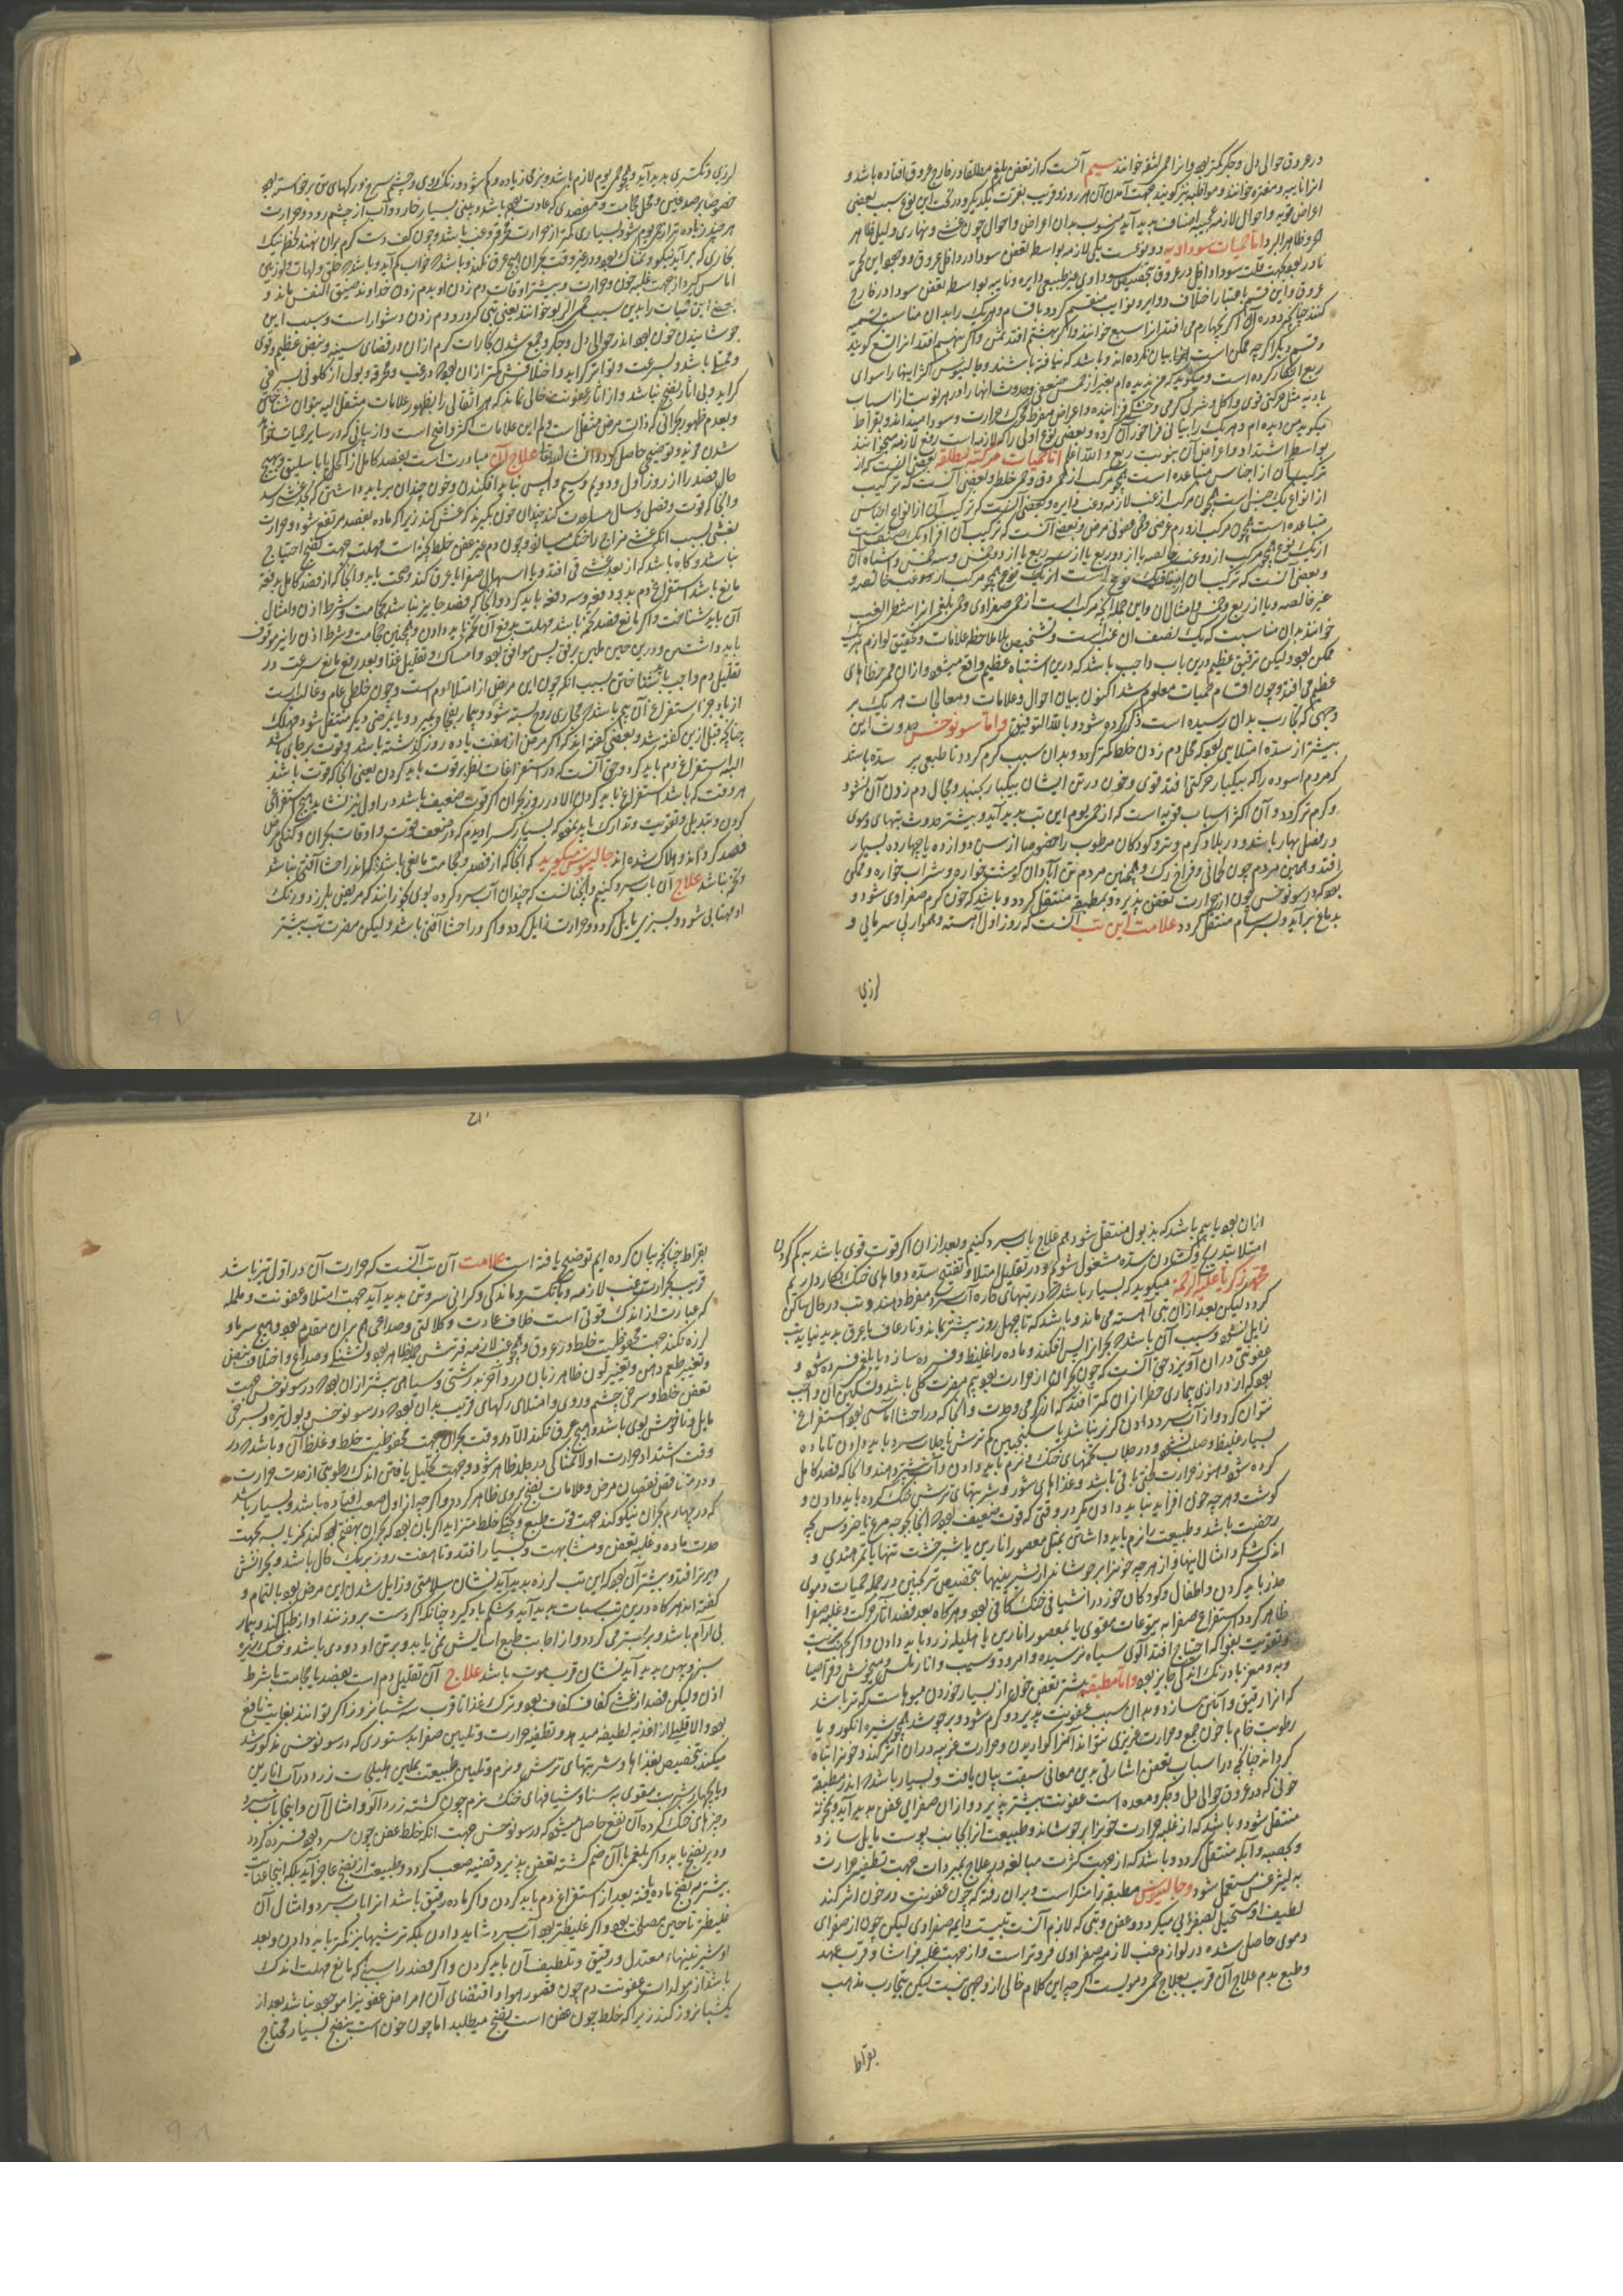 در عروق حوالی دل و جگر کمتر بود و این را حمی لثقه خوانند سیم آنست که از تعفن بلغم مطلقا در خارج عروق افتاده باشد و
انرا نایبه و مفتره خوانند و مواظبه نیز کویند جهت آمدن آن هر روز و قریب بنوبت یکدیکر و در تحت این نوع بسبب بعضی
اعراض قویه و احوال لازمه غریبه اصناف پدید آید منسوب بدان اعراض و احوال چون غشی و نهاری و لیلی ظاهر
اما حمیات سوداویه دو نوع است یکی لازمه بواسطه تعفن سودا در داخل عروق و وجود این حمی
نادر بود جهت قلت سودا داخل در عروق بتخصیص سوداوی غیر طبیعی و دایره و نایبه بواسطه تعفن سودا در خارج
عروق و این قسم باعتبار اختلاف دوایر نوایب منقسم کردد باقسام و هر یک را بدان مناسب تسمیه
کنند چنانچه دوره آن اگر بچهارم می افتد انرا ربع خوانند و اگر بهشتم افتد ثمن و اگر بنهم افتد انرا تسع کویند
و قسم دیگر اگرچه ممکن است اما بیان نکرده اند و باشد که نیافته باشند و جالینوس اکثر اینها را سوای
ربع انکار کرده است و میکوید که من ندیده ام بغیر از خمس ضعیفی و حدوث اینها را در هر نوبت از اسباب
بادیه مثل حرکتی قوی و اکل و شرب کرمی و خشکی فزاینده و اعراض مفرط محرک حرارت و سودا میداند و بقراط
میکوید من دیده ام و هر یک را بیانی فراخور آن کرده و بعضی نوع اولی را که لازمه است ربع لازمه میخوانند
بواسطه اشتداد و اعراض آن بنوبت ربع و الله اعلم اما حمیات مرکبه مطلقه بعضی آنست که از
ترکیب آن از اجناس متباعده است همچو مرکب از حمی دق و حمی خلط و بعضی آنست که ترکیب
از انواع یک جنس است همچون مرکب از غب لازمه و غب دایره و بعضی آنست که ترکیب آن از انواع اجناس
متباعده است همچون مرکب از ورم عرضی و حمی عفونی مرض و بعضی آنست که ترکیب آن افراد یک صنف است
از یک نوع همچو مرکب از دو غب خالصه یا از دو ربع یا از سه ربع یا از دو خمس و سه خمس و اشباه آن
و بعضی آنست که ترکیب آن از اصناف یک نوع است از یک نوع همچو مرکب از دو غب خالصه و
غیر خالصه و یا از ربع و خمس و امثال آن و این جمله انچه مرکب است از حمی صفراوی و حمی بلغمی انرا شطر الغب
خوانند بدان مناسبت که یک نصف آن غب است و تشخیص بلا ملاحظه علامات و تحقیق لوازم هر یک
ممکن نبود و لیکن توفیق عظیم درین باب واجب باشد که درین اشتباه عظیم واقع میشود و از ان ممر خطاهای
عظیم می افتد و چون اقسام حمیات معلوم شد اکنون بیان احوال و علامات و معالجات هر یک بر
وجهی که تجارب بدان رسیده است ذکر کرده شود و بالله التوفیق و اما سونوخس حدوث این
بیشتر از سده امتلایی بود که محل دم زدن خلط کمتر کردد و بدان سبب کرم کردد نا طبعی بر سده باشد
که مردم آسوده را که بیکبار حرکتی افتد قوی و خون در تن ایشان بیکبار بجنبد و مجال دم زدن آن نشود
و کرم تر کردد و آن اکثر اسباب قویه است که از حمی یوم این تب پدید آید و بیشتر حدوث تبهای دموی
در فصل بهار باشد و در بلاد کرم و تر و کودکان مرطوب را خصوصا از سن دوازده یا چهارده بسیار
افتد و همچنین مردم جوان لحمانی و فراخ رک و همچنین مردم تن آبادان کوشت خواره و شراب خواره و ممکن
بود که در سونوخس خون از حرارت تعفن پذیرد و بمطبقه منتقل کردد و باشد که خون کرم صفراوی شود و
بدماغ برآید و بسرسام منتقل کردد علامت این تب آنست که روز اول آهسته و بهموار بی سرمایی و
لرزی
لرزی و تکسری پدید آید و همچو حمی یوم لازم باشد و بتری زیاده و کم نشود و رنک روی و چشم سرخ و رکهای تن برخاسته بود
خصوصا بر صدغین و محل حجامت و فصدی که عادت بود باشد و بینی بسیار خارد و آب از چشم رود و حرارت
هر چند زیاده تر از حمی یوم شود و بسیاری کمتر از حرارت محرقه و غب باشد و چون کف دست کرم بران نهند لحظه نیک
بخاری که برآید نیکو و نمناک بود و در غیر وقت بحران هیچ عرق نکند و باشد که خواب کم آید و باشد که حلق و لهات و لوزتین
اماس کیرد از جهت غلبه خون و حرارت و بیشتر اوقات دم زدن او بدم زدن خداوند ضیق النفس ماند و
بعضی این تبات را بدین سبب حمی الربو خوانند یعنی تبی که درو دم زدن دشوار است و سبب این
جوشانیدن خون بود اندر حوالی دل و جکر و جمع شدن بخارات کرم ازان در فضای سینه و نبض عظیم و قوی
و ممتلی باشد و بسرعت و تواتر کراید و اختلافش کمتر ازان بود که در غب و محرقه و بول از کلونی بسرخی
کراید و بی اثار نضج نباشد و از اثار عفونت خالی نماند که هر انتقالی را بظهور علامات منتقل الیه بتوان شناختن
و بعدم ظهور بحرانی که ذات مرض منتقل است و بهم این علامات اکثر واضح است و از بیانی که در سایر حمیات خواهد
شدن مزید توضیحی حاصل کردد انشاالله تعالی علاج آن مبادرت است بفصد کامل از اکحل یا باسلیق و بهیچ
حال فصد را از روز اول و دویم و سیم واپس نباید افکندن و خون چندان بر باید داشتن که بحد غشی رسد
و انجا که قوت و فصل و سال مساعدت کند چندان خون بکیرند که غشی کند زیرا که ماده بفصد مرتفع شود و حرارت
بغشی بسبب آنکه غشی مزاج را خنک میسازد و چون دم غیر عفن خلط نکته است مهلت جهت نضج احتیاج
نباشد و کاه باشد که از بعد غشی قی افتد و یا اسهال صفرا یا عرق کند و صحت یابد و انجا که از فصد کامل بدفعه
مانع باشد استفراغ دم بدو دفعه و سه دفعه باید کرد و انجا که فصد جایز نباشد حجامت و شرط اذن و امثال
آن باید شناخت و اگر مانع فصد تخمه باشد مهلت بدفع آن تخمه باید دادن و همچنین حجامت و شرط اذن را نیز موقوف
باید داشتن و درین حین ملین برفق بس موافق بود و امساک و تقلیل غذا و بعد رفع مانع بسرعت در
تقلیل دم واجب باید شناختن بسبب انکه چون این مرض از امتلا دم است و چون خلطی عام و غالب است
از بادجز استفراغ آن بیم باشد که مجاری روح بسته شود و بیمار بفجا بمیرد و یا بمرضی دیگر منتقل شود مهلک
چنانچه قبل ازین کفته شد و بعضی کفته اند که اگر مرض از هفت یا ده روز کذشته باشد و قوت بر جای باشد
البته استفراغ دم باید کرد و حق آنست که در استفراغات نظر بر قوت باید کردن یعنی انجا که قوت باشد
هر وقت که باشد استفراغ باید کردن الا در روز بحران اگر قوت ضعیف باشد در اول نیز نشاید هیچ استفراغی
کردن و تبدیل و تقویت و تدارک باید نمود که بسیار کسرا دیدم که در ضعف قوت و اوقات بحران و کهنگی مرض
فصد کردند و هلاک شده اند جالینوس میکوید که انجا که از فصد و حجامت مانعی باشد که اندر احشا آفتی نباشد
و تخمه نباشد علاج آن باب سرد کنیم و انچنانست که چندان آب سرد کرده بوی بخورانند که مریض بلرزد و رنک
او مهتابی شود و بسبزی مایل کردد و حرارت زایل کردد و اگر در احشا آفتی باشد و لیکن مضرت تب بیشتر
۹۷
ازان بود یا بیم باشد که بذبول منتقل شود هم علاج باب سرد کنیم و بعد ازان اگر قوت قوی باشد به کم کردن
امتلا بتدریج و کشادن سده مشغول شویم و در تقلیل امتلا و تفتیح سده دواهای خنک بکار داریم
محمد زکریا علیه الرحمه میکوید که بسیار باشد که در تبهای حاره آب سرد مفرط دهند و تب در حال ساکن
کردد لیکن بعد ازان تبی آهسته می ماند و باشد که تا چهل روز بیشتر بماند و تا رعاف یا عرق پدید نیاید تب
زایل نشود و سبب آن باشد که بحران را پس افکند و ماده را غلیظ و فسرده سازد یا بلغم فسرده شود و
عفونتی دران آویزد حق آنست که چون بحران از حرارت بود بیم مضرت کلی باشد و تسکین آن واجب
بود که از درازی بیماری خطر ازان کمتر افتد که از کرمی و حدت و انجا که در احشا اماسی بود استفراغ
نتوان کرد و از آب سرد دادن کریز نباشد یا سکنجبین کم ترش یا جلاب سرد باید دادن تا ماده
بسیار غلیظ و صلب نشود و در جلاب تخمهای خنک و نرم باید دادن و آب تمر هندی و انجا که فصد کامل
کرده شود و هنوز حرارت طبی باقی باشد و غذاهای شور و شربتهای ترش خنک کرده باید دادن و
کوشت و هر چه خون افزاید نباید دادن مکر در وقتی که قوت ضعیف بود که انجا جوجه مرغ یا خروس بچه
رخصت باشد و طبیعت را نرم باید داشتن بمثل معصور انارین یا شیر خشت تنها یا تمر هندی و
اندک شکر و امثال اینها و از هر چه خونرا بر جوشاند از شیرینیها بتخصیص ترنجبین در جمله حمیات دموی
حذر باید کردن و اطفال و کودکان خورد را شیافی خنک کافی بود و هر کاه بعد فصد اثار حرکت و غلبه صفرا
ظاهر کردد استفراغ صفرا به نقوعات مقوی یا بمعصور انارین یا هلیله زرد باید دادن و اگر جهت ترتیب
و تقویت بفواکه احتیاج افتد آلوی سیاه نرسیده و امرود و سیب و انار ملس و میخوش و فراصیا
و به و مغز بادرنک اندکی جایز بود و اما مطبقه بیشتر تعفن خون از بسیار خوردن میوهاست که تر باشد
که انرا رقیق و آبکین سازد و بدان سبب عفونت پذیرد و کرم شود و بر جوشد همچو شیره انکور و یا
رطوبت خام با خون جمع و حرارت غریزی نتواند آنرا کواریدن و حرارت غریبه دران اثر کند و خونرا تباه
کرداند چنانچه در اسباب تعفن اشارتی بدین معانی سبقت بیان یافت و بسیار باشد که اندر مطبقه
خونی که در عروق حوالی دل و جکر و معده است عفونت بیشتر پذیرد و ازان صفرایی عفن پدید آید و بمحرقه
منتقل شود و باشد که از غلبه حرارت خونرا بر جوشاند و طبیعت انرا بجانب پوست مایل سازد
و بحصبه و ابله منتقل کردد و باشد که از جهت کثرت مبالغه در علاج بمبردات جهت تطفیه حرارت
به لیثرغس مستعمل شود و جالینوس مطبقه را منکر است و بران رفته که چون عفونت در خون اثر کند
لطیف او مستحیل بصفرائی میکردد و عفن و تبی که لازم آنست تبیست دایم صفراوی لیکن چون از صفرای
دموی حاصل شده در لوازم غب لازمه صفراوی فروتر است و از جهت غلبه فراشا و قرب عهد
و طبع بدم علاج آن قریب بعلاج حمی دمویست اگرچه این کلام خالی از وجهی نیست لیکن بتجارب مذهب
بقراط
بقراط چنانچه بیان کرده ایم توضیح یافته است علامت آن تب آنست که حرارت آن در اول تیز باشد
قریب بحرارت غب لازمه و با تکسر و ماندگی و کرانی سر و تن پدید آید جهت امتلا و عفونت و ململه
که عبارت از اندک قوتی است خلاف عادت و کلالتی و صداعی هم بران مقدم بود و هیچ سرما و
لرزه نکند جهت محفوظیت خلط در عروق و همچو غب لازمه فترتش جلی ظاهر بود و تشنگی و صداع و اختلاف نبض
و تغییر طعم دهن و تغییر لون ظاهر زبان در رو آخر بدرشتی و سیاهی بیشتر ازان بود که در سونوخس جهت
تعفن خلط و سرخی چشم و روی و امتلای رکهای قریب بدان بود که در سونوخس و بول تیره و بسرخی
مایل و ناخوش بوی باشد و هیچ عرق نکند الا در وقت بحران جهت محفوظیت خلط و غلظ آن و باشد که در
وقت اشتداد حرارت اولا نمناکی در جلد ظاهر شود و جهت تحلیل یافتن اندک رطوبتی از حدت حرارت
و در متناقص نقصان مرض و علامات نضج بروی ظاهر کردد و اگرچه از اول صعب افتاده باشد و بسیار باشد
که در چهارم بحران نیکو کند جهت قوت طبع و پختگی خلط متزاید اگر بان بود که بحران بهفتم بود کند مکر بابسه جهت
حدت ماده و غلبه تعفن و مشابهت و بسیار افتد و تا هفت روز بر یک حال باشد و بحرانش
دیرتر افتد و بیشتر آن بود که این تب لرزه پدید آید نشان سلامتی و زایل شدن این مرض بود بالتمام و
کفته اند هر کاه درین تب سبات پدید آید و شکم باد کیرد چنانکه اگر دست برو زنند آواز طبل کند و بیمار
بی آرام باشد و بر بستر می کردد و از اجابت طبع آسایش نمی یابد و بر تن او دودی باشد و خشک ریزه
سبز و پهن پدید آید نشان قرب موت باشد علاج آن تقلیل دم است بفصد یا حجامت یا شرط
اذن و لیکن فصد از غشی کفاف کفاف بود و ترک غذا تا قرب سه شبانروز اگر توانند بغایت نافع
بود و الا قلیلی از اغذیه لطیفه میدهد و تطفیه حرارت و تلیین صفرا بدستوری که در سونوخس مذکور شد
میکند بتخصیص بغذاها و شربتهای ترش و نرم و تلیین طبیعت بملین هلیلجات زرد در آب انارین
و یا بچهار شربت مقوی به سنا و شیافهای خنک نرم چون کشته زرد آلو و امثال آن و اینجا باب سرد
و چیزهای خنک کرده آن نفع حاصل میشود که در سونوخس جهت انکه خلط عفن چون سرد بود فسرده کردد
و دیر نضج یابد و اگر بلغمی با آن ضم کشته تعفن پذیرد قضیه صعب کردد و طبیعت از نضج عاجز آید بلکه اینجا عنایت
بیشتر به نضج ماده یافته بعد از استفراغ دم باید کردن و اگر ماده رقیق باشد انرا باب سرد و امثال آن
غلیظتر تا حین مصلحت بود و اگر غلیظتر بود آب سرد شاید دادن بلکه ترشیها نیز کمتر باید دادن و بعد
او شیرینیهاء معتدل و رقیق و تلطیف آن باید کردن و اگر فصد را سببی که مانع مهلت اندک
باشد از مولدات عفونت دم چون قصور هوا و اقتضای آن امراض عفونیرا موجود نباشد بعد از
یکشبانروز کند زیرا که خلط چون عفن است نضج میطلبد اما چون خون است بنضج بسیار محتاج
۹۸